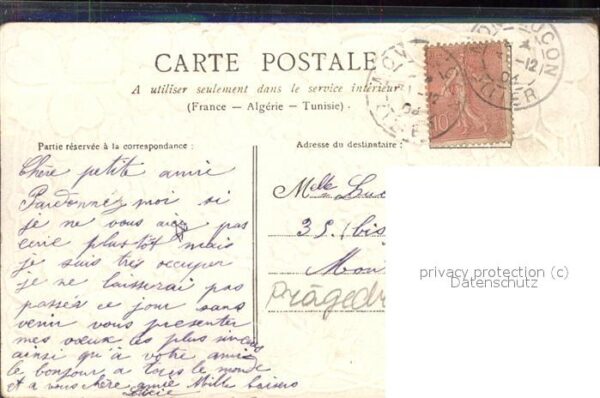 CARTE POSTALE
A utiliser seulement dans le service intérieur
(France — Algérie — Tunisie).
Partie réservée à la correspondance :
Adresse du destinataire :
Chère petite amie
Pardonnez moi si
je ne vous ai pas
écrie plus tôt mais
je suis très occuper
je ne laisserai pas
passés ce jour sans
venir vous présenter
mes vœux les plus sincères
ainsi qu'à votre amie
le bonjour à tous le monde
et a vous chère amie Mille baisers
Lucie
Mlle Luc
35 (bis
Mon
Prägedr
privacy protection (c)
Datenschutz
10
LUÇON
12
04
ALLIER